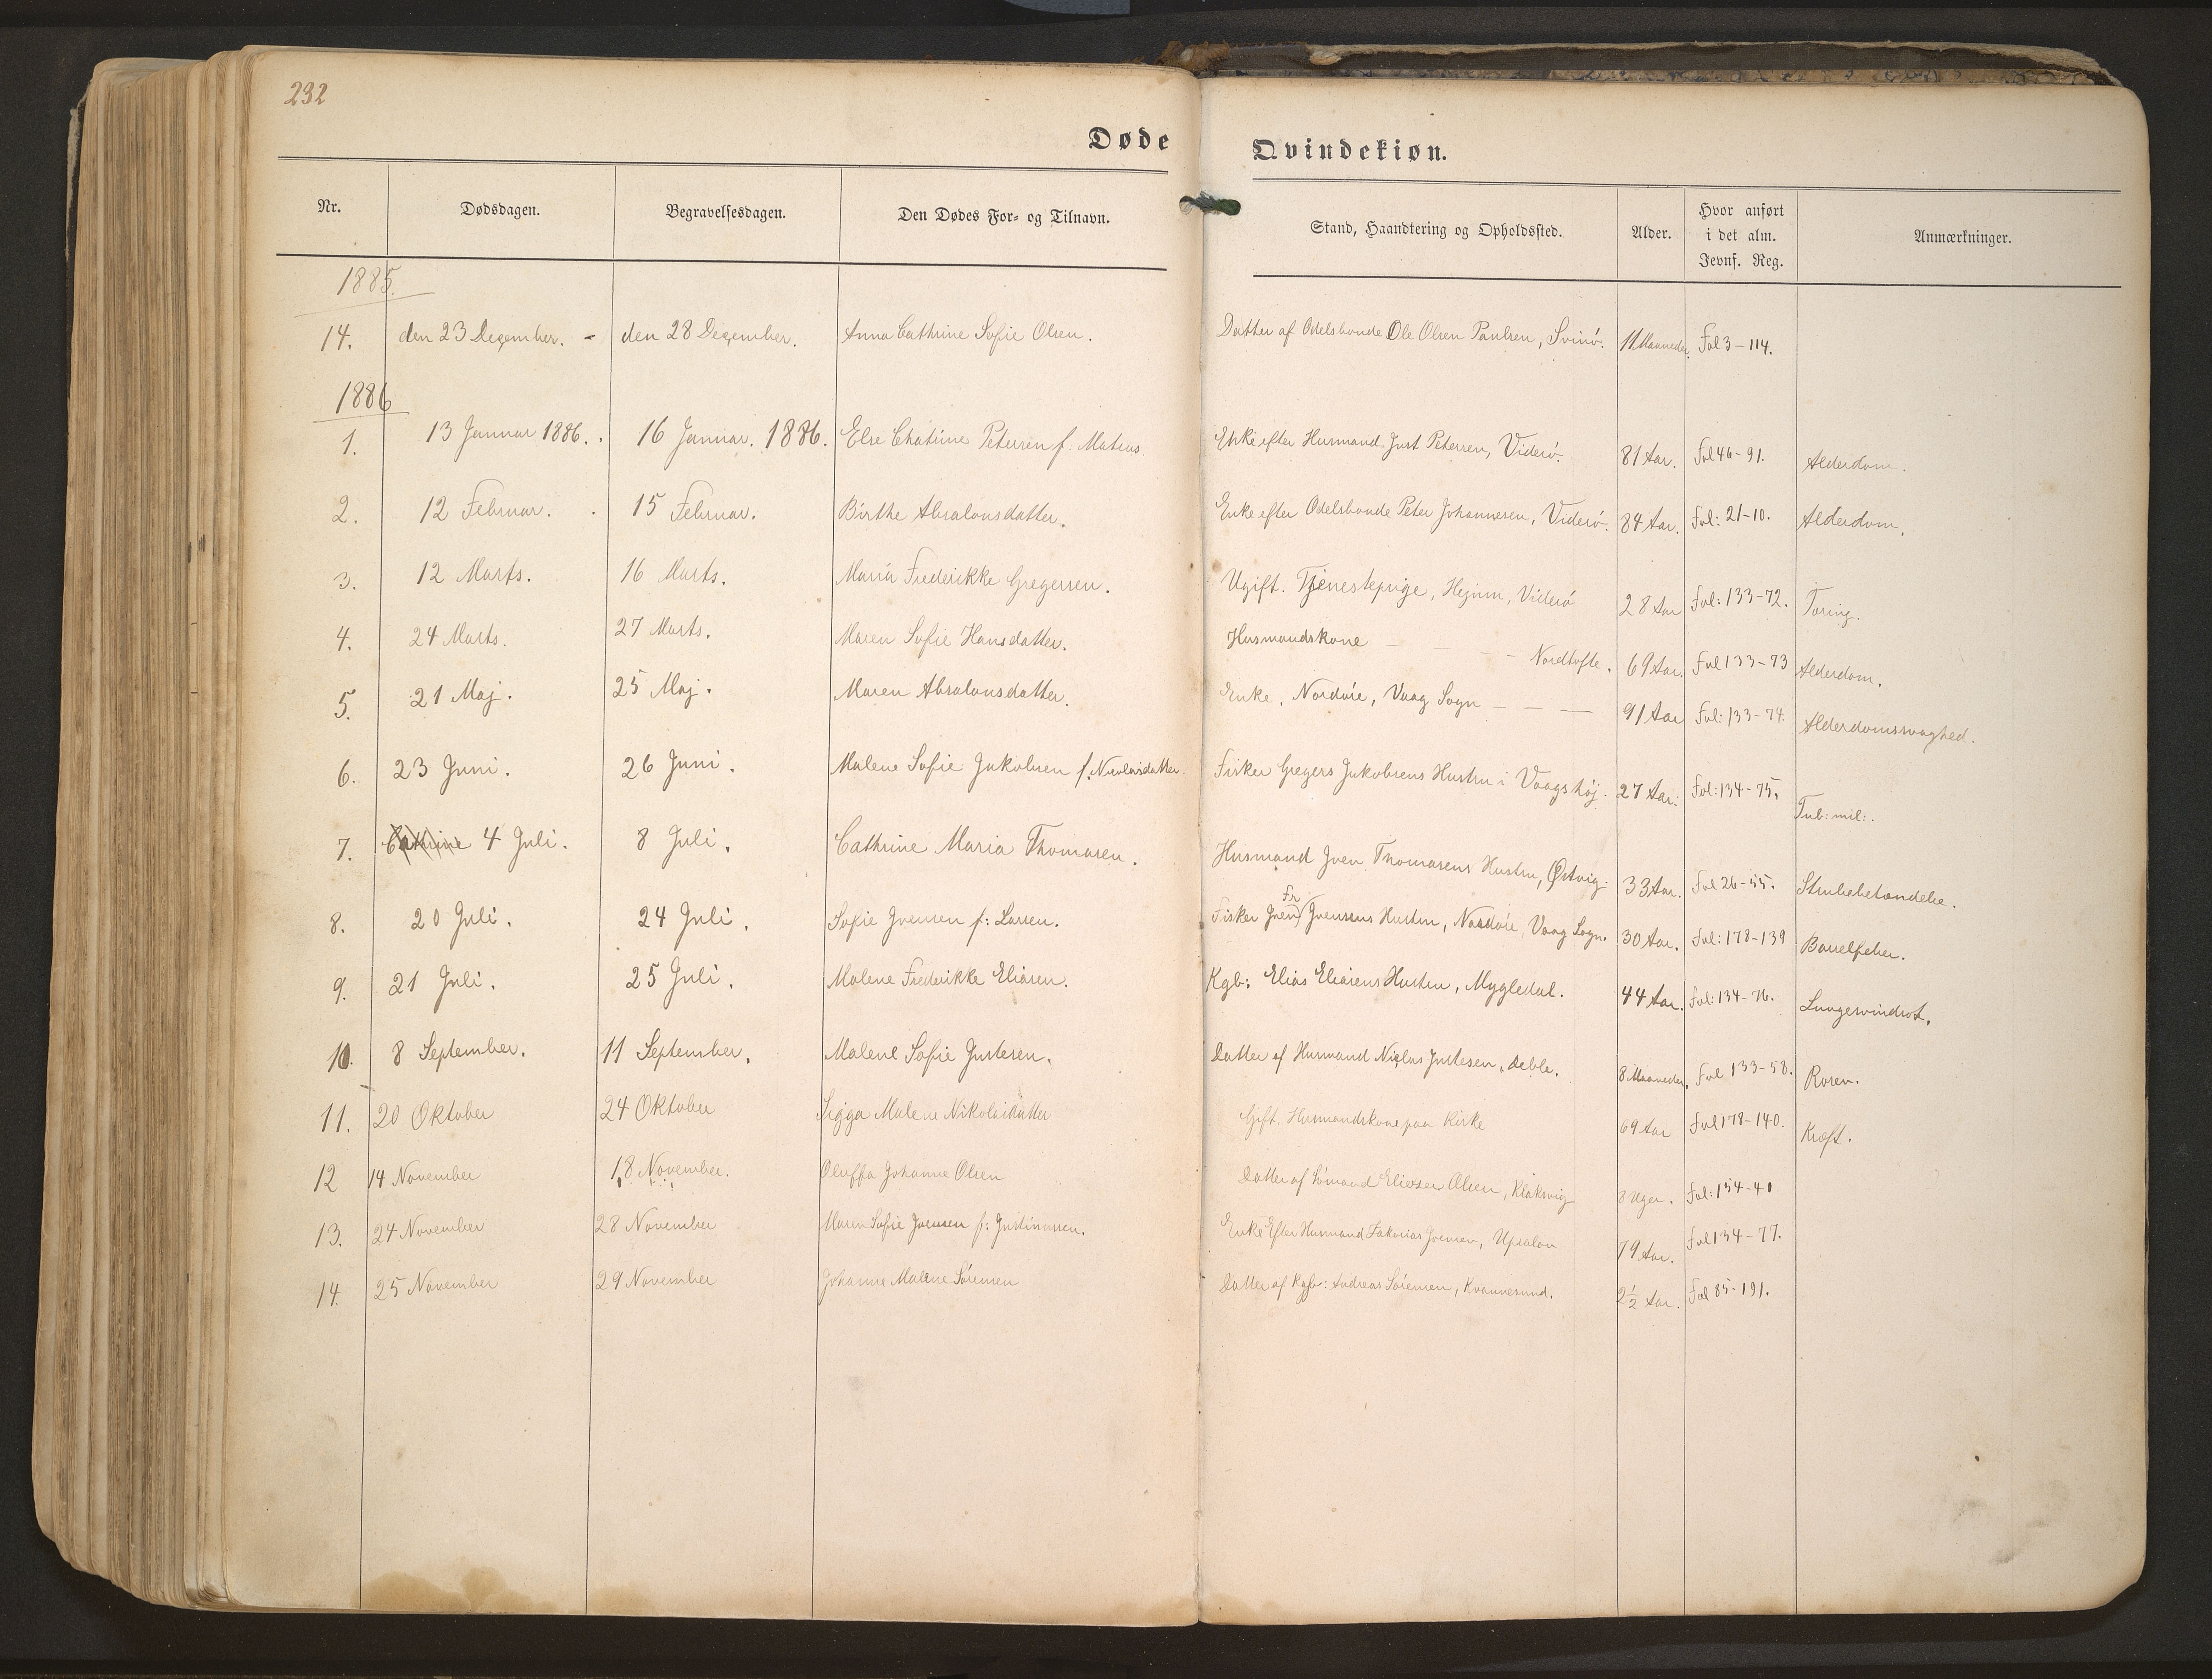 232
Døde Qvindekiøn.
Nr. Dødsdagen. Begravelsesdagen. Den Dødes For- og Tilnavn. Stand, Haandtering og Opholdssted. Alder. Hvor anført i det alm. Jevnf. Reg. Anmærkninger.
1885.
14. den 23 December. - den 28 December. Anna Cathrine Sofie Olsen. Datter af Odelsbonde Ole Olsen Poulsen, Svinø. 11 Maaneder. Fol 3-114.
1886
1. 13 Januar 1886. 16 Januar. 1886. Else Petersen f. Enke efter Husmand Just Petersen, Viderø. 81 Aar. Fol 46-91. Alderdom.
2. 12 Februar. 15 Februar. Birthe Absalonsdatter. Enke efter Odelsbonde Peter Johannesen, Viderø. 84 Aar. Fol: 21-10. Alderdom.
3. 12 Marts. 16 Marts. Maria Frederikke Gregersen. Ugift. Tjenestepige, Viderø 28 Aar Fol: 133-72. Tæring.
4. 24 Marts. 27 Marts. Maren Sofie Hansdatter. Husmandskone - - - Nordtofte. 69 Aar. Fol 133-73 Alderdom.
5. 21 Maj. 25 Maj. Maren Absalonsdatter. Enke, Nordøre, Vaag Sogn - - - 91 Aar Fol: 133-74. Alderdomssvaghed.
6. 23 Juni. 26 Juni. Malene Sofie Jakobsen f. Nicolaisdatter. Fisker Gregers Jakobsens Hustru i Vaagshøj. 27 Aar. Fol: 134-75. Tub: mil:.
7. Cathrine 4 Juli. 8 Juli. Cathrine Maria Thomasen. Husmand Joen Thomasens Hustru, Østvig. 33 Aar. Fol 26-55. Strubebetændelse.
8. 20 Juli. 24 Juli. Sofie Joensen f: Larsen. Fisker Joen Fr Joensens Hustru, Nordøre, Vaag Sogn. 30 Aar. Fol: 178-139 Barselfeber.
9. 21 Juli. 25 Juli. Malene Frederikke Eliasen. Kgb: Elias Eliasens Hustru, Mygledal. 44 Aar. Fol: 134-76. Lungesvindsot.
10. 8 September. 11 September. Malene Sofie Justesen. Datter af Husmand Niclas Justesen, Deble. 8 Maaneder. Fol 133-58. Rosen.
11. 20 Oktober 24 Oktober Sigga Malene Nikolaidatter Gift. Husmandskone paa Kirke 69 Aar Fol 178-140. Kræft.
12 14 November 18 November. Oluffa Johanne Olsen Datter af Sømand Elieser Olsen, Klaksvig 8 Uger. Fol: 154-40
13. 24 November 28 November Maren Sofie Joensen f: Justinussen. Enke Efter Husmand Zakarias Joensen, Upsalon 79 Aar. Fol 134-77.
14. 25 November 29 November Johanne Malene Sørensen Datter af Kgb: Andreas Sørensen, Kvannesund. 2½ Aar. Fol 85-191.